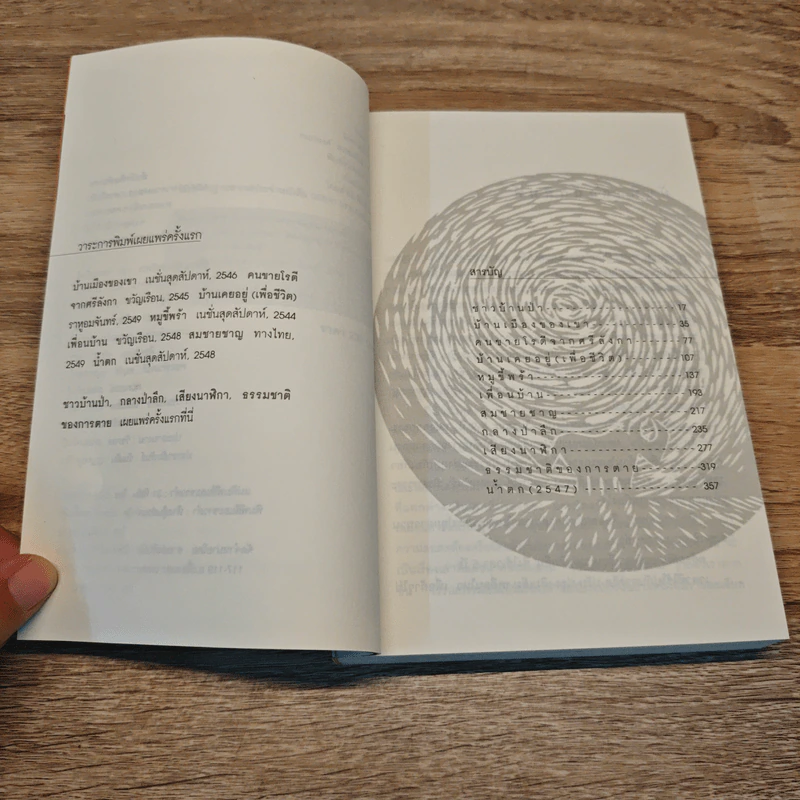 วาระการพิมพ์เผยแพร่ครั้งแรก
บ้านเมืองของเขา เนชั่นสุดสัปดาห์, 2546 คนขายโรตี
จากศรีลังกา ขวัญเรือน, 2545 บ้านเคยอยู่ (เพื่อชีวิต)
ราหูอมจันทร์, 2549 หมูขี้พร้า เนชั่นสุดสัปดาห์, 2544
เพื่อนบ้าน ขวัญเรือน, 2548 สมชายชาญ ทางไทย,
2549 น้ำตก เนชั่นสุดสัปดาห์, 2548
ชาวบ้านป่า, กลางป่าลึก, เสียงนาฬิกา, ธรรมชาติ
ของการตาย เผยแพร่ครั้งแรกที่นี่
สารบัญ
ชาวบ้านป่า 17
บ้านเมืองของเขา 35
คนขายโรตีจากศรีลังกา 77
บ้านเคยอยู่(เพื่อชีวิต) 107
หมูขี้พร้า 137
เพื่อนบ้าน 193
สมชายชาญ 217
กลางป่าลึก 235
เสียงนาฬิกา 277
ธรรมชาติของการตาย 319
น้ำตก(2547) 357